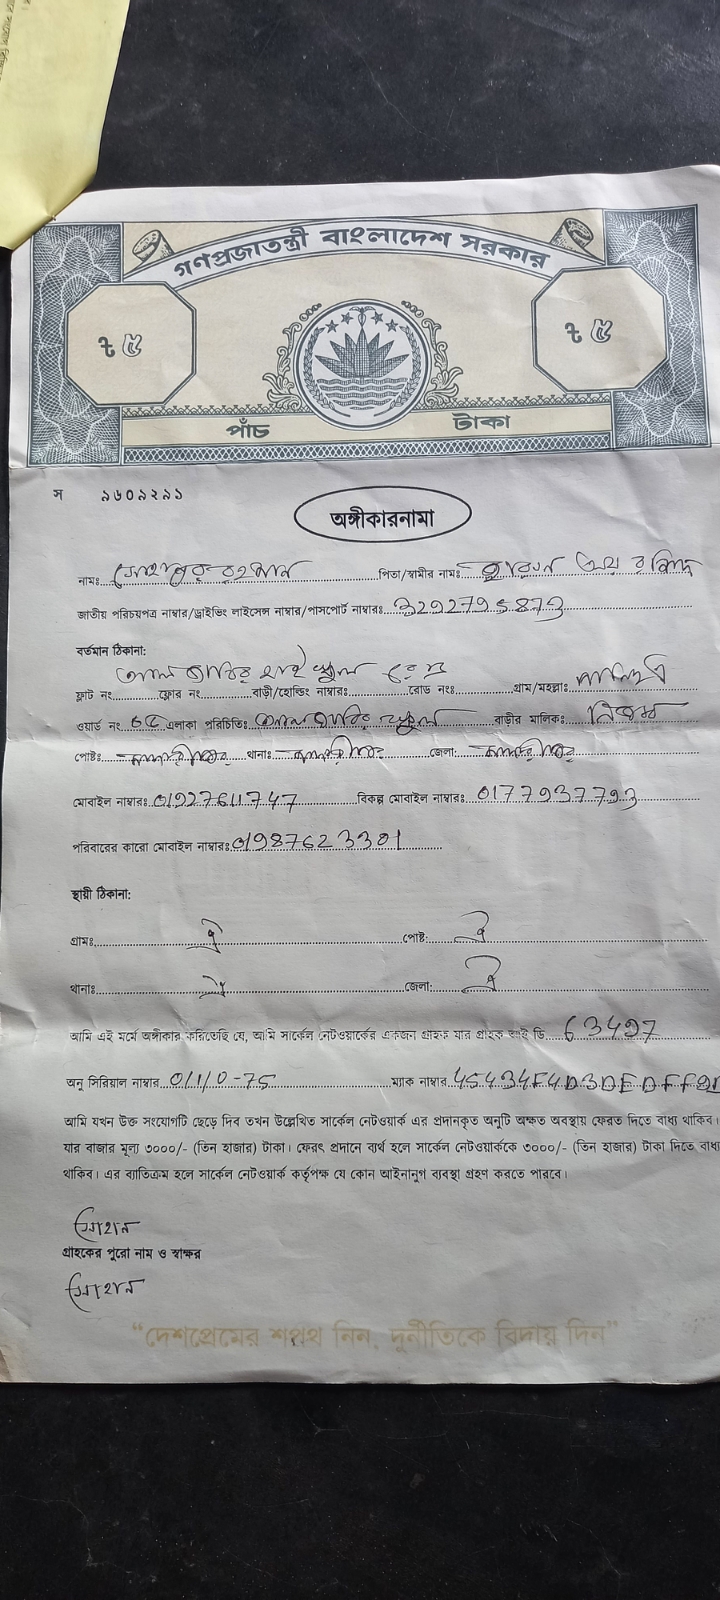 গণপ্রজাতন্ত্রী বাংলাদেশ সরকার
৳ ৫ ৳ ৫
পাঁচ টাকা
স ৯৬০৯২৯১
অঙ্গীকারনামা
নামঃ পিতা/স্বামীর নামঃ
জাতীয় পরিচয়পত্র নাম্বার/ড্রাইভিং লাইসেন্স নাম্বার/পাসপোর্ট নাম্বারঃ 3292795873
বর্তমান ঠিকানা:
ফ্লাট নং ফ্লোর নং বাড়ী/হোল্ডিং নাম্বারঃ রোড নংঃ গ্রাম/মহল্লাঃ
ওয়ার্ড নং এলাকা পরিচিতিঃ বাড়ীর মালিকঃ নিজস্ব
পোষ্টঃ থানাঃ জেলা:
মোবাইল নাম্বারঃ 01927611747 বিকল্প মোবাইল নাম্বারঃ 0177937793
পরিবারের কারো মোবাইল নাম্বারঃ 01987623301
স্থায়ী ঠিকানা:
গ্রামঃ ঐ পোষ্ট: ঐ
থানাঃ ঐ জেলা: ঐ
আমি এই মর্মে অঙ্গীকার করিতেছি যে, আমি সার্কেল নেটওয়ার্কের একজন গ্রাহক যার গ্রাহক আই ডি 63497
অনু সিরিয়াল নাম্বার 0/1/0-75 ম্যাক নাম্বার
আমি যখন উক্ত সংযোগটি ছেড়ে দিব তখন উল্লেখিত সার্কেল নেটওয়ার্ক এর প্রদানকৃত অনুটি অক্ষত অবস্থায় ফেরত দিতে বাধ্য থাকিব।
যার বাজার মূল্য ৩০০০/- (তিন হাজার) টাকা। ফেরৎ প্রদানে ব্যর্থ হলে সার্কেল নেটওয়ার্ককে ৩০০০/- (তিন হাজার) টাকা দিতে বাধ্য
থাকিব। এর ব্যতিক্রম হলে সার্কেল নেটওয়ার্ক কর্তৃপক্ষ যে কোন আইনানুগ ব্যবস্থা গ্রহণ করতে পারবে।
সোহান
গ্রাহকের পুরো নাম ও স্বাক্ষর
সোহান
“দেশপ্রেমের শপথ নিন, দুর্নীতিকে বিদায় দিন”